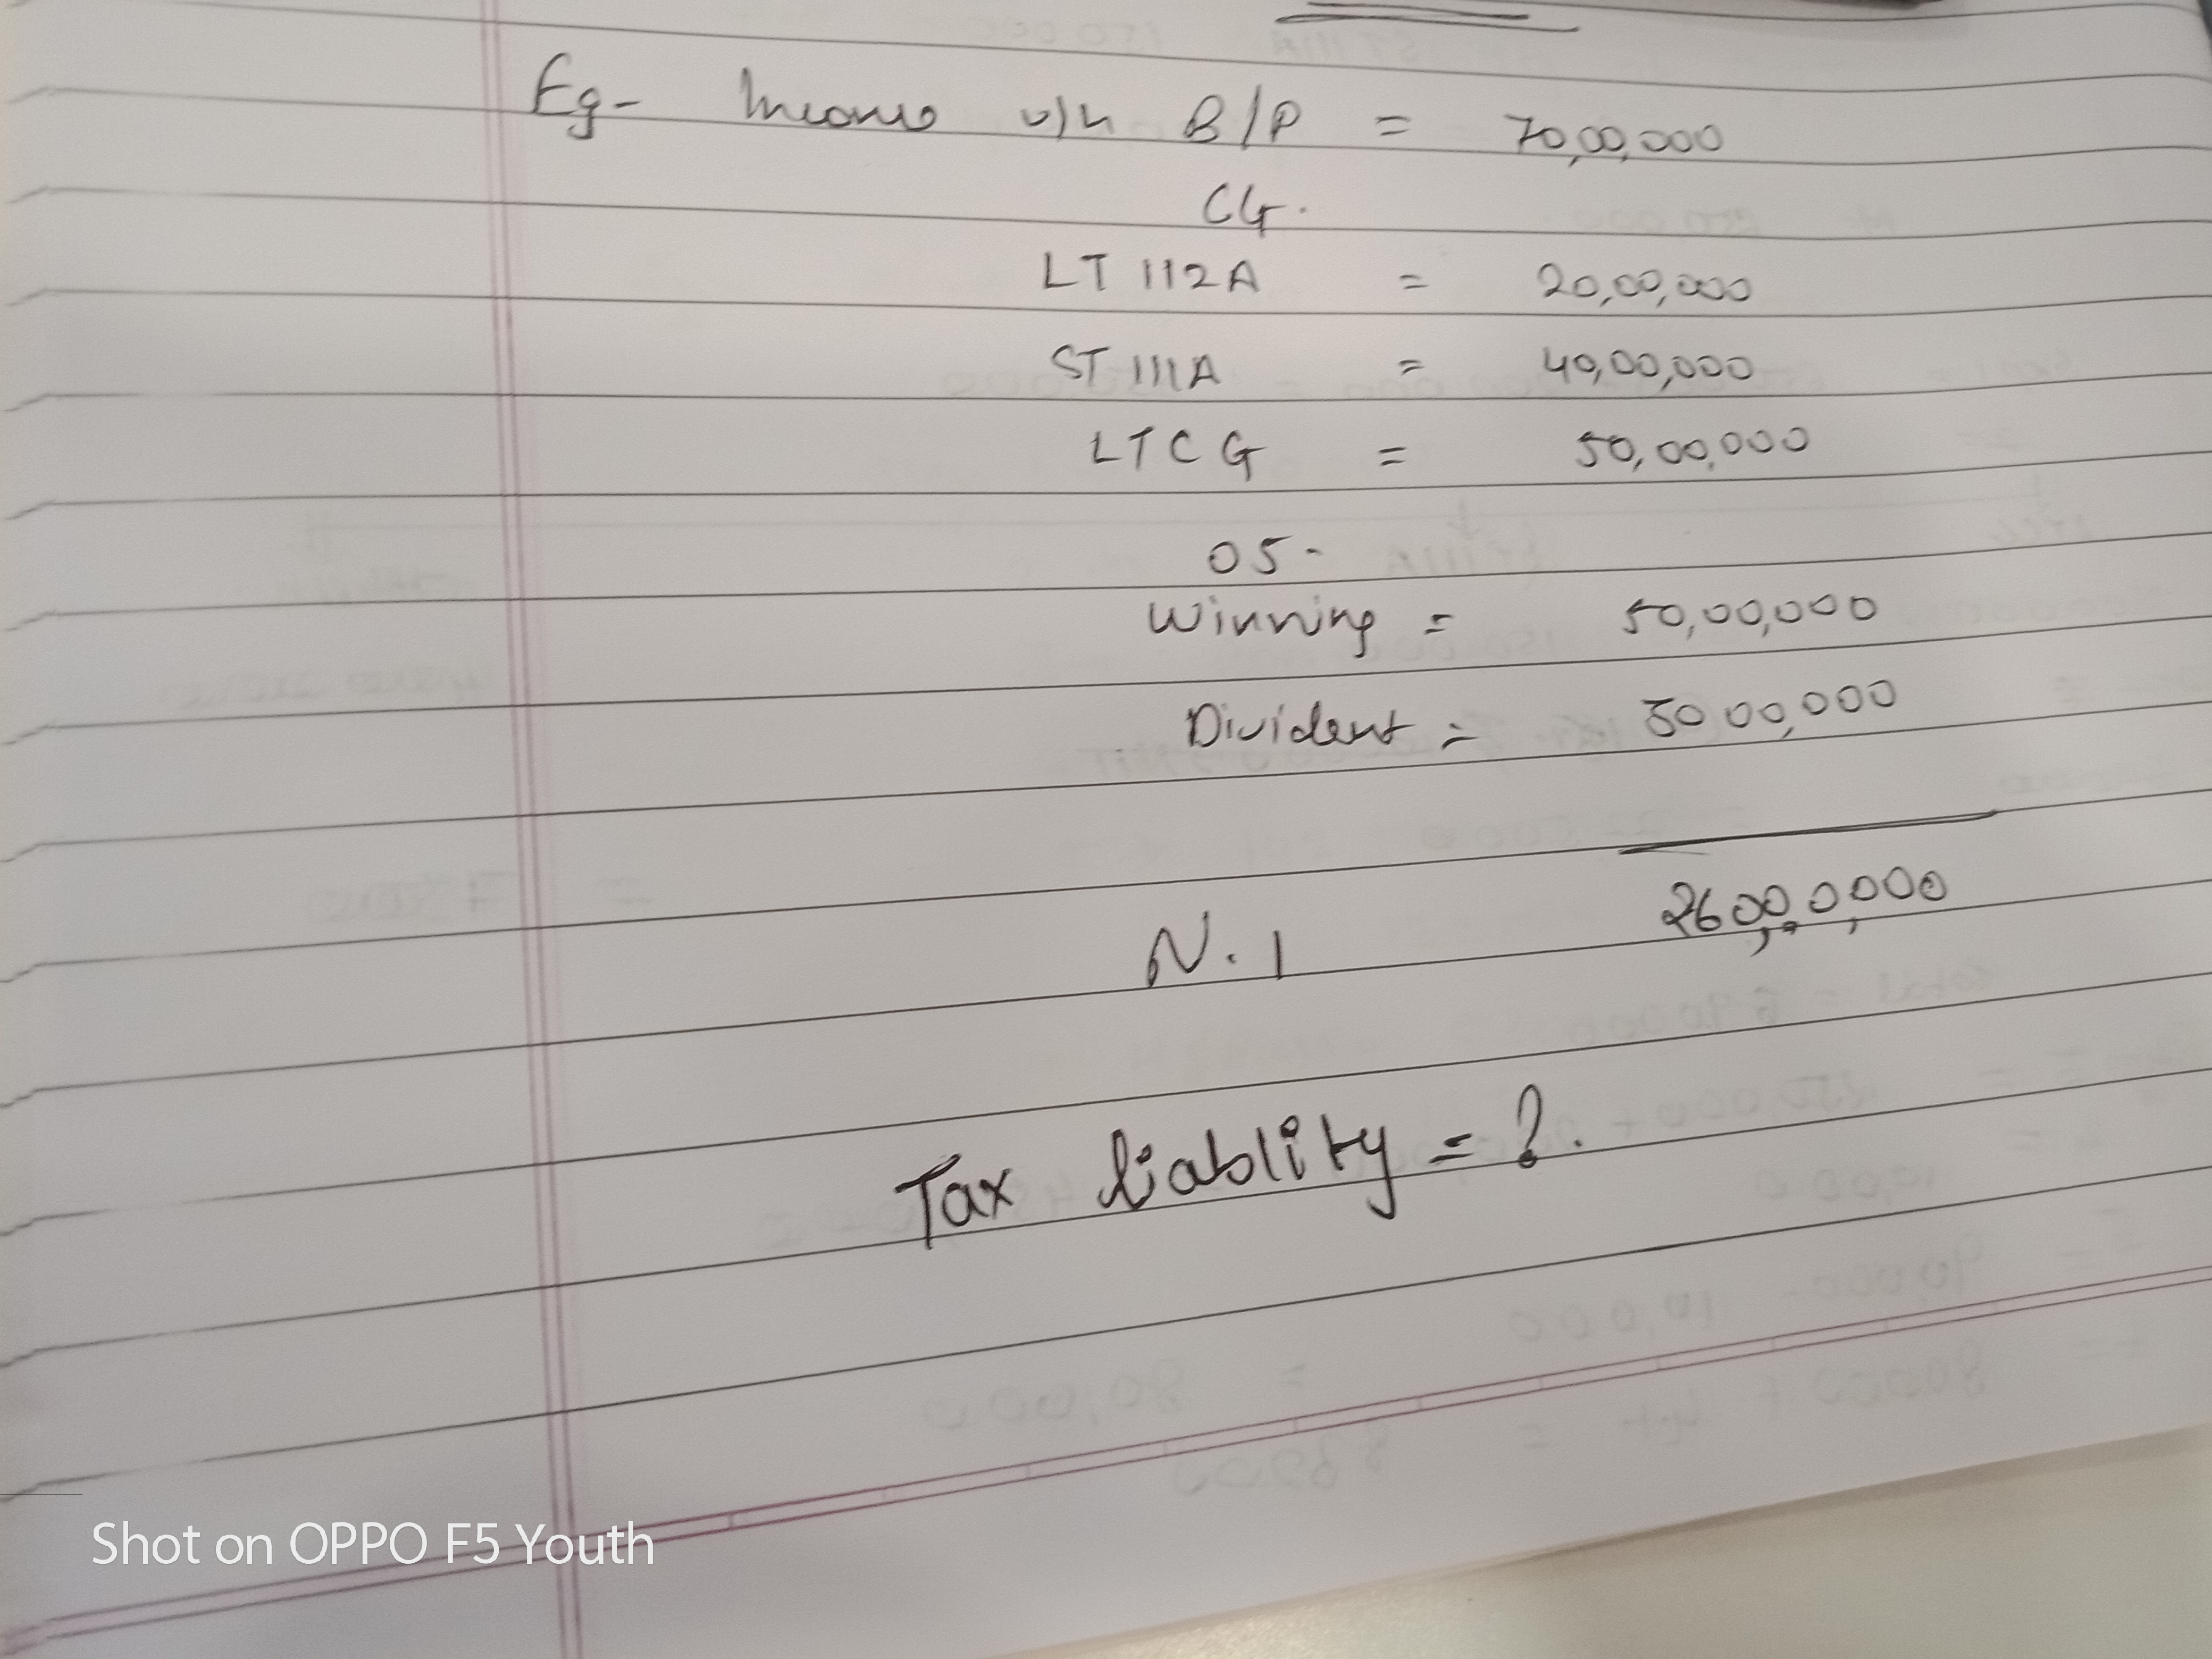 Eg- Income u/h B/P = 70,00,000
CG.
LT 112A = 20,00,000
ST 111A = 40,00,000
LTCG = 50,00,000
OS-
Winning = 50,00,000
Divident = 3000,000
N.I 2600,0,000
Tax liablity = ?.
Shot on OPPO F5 Youth